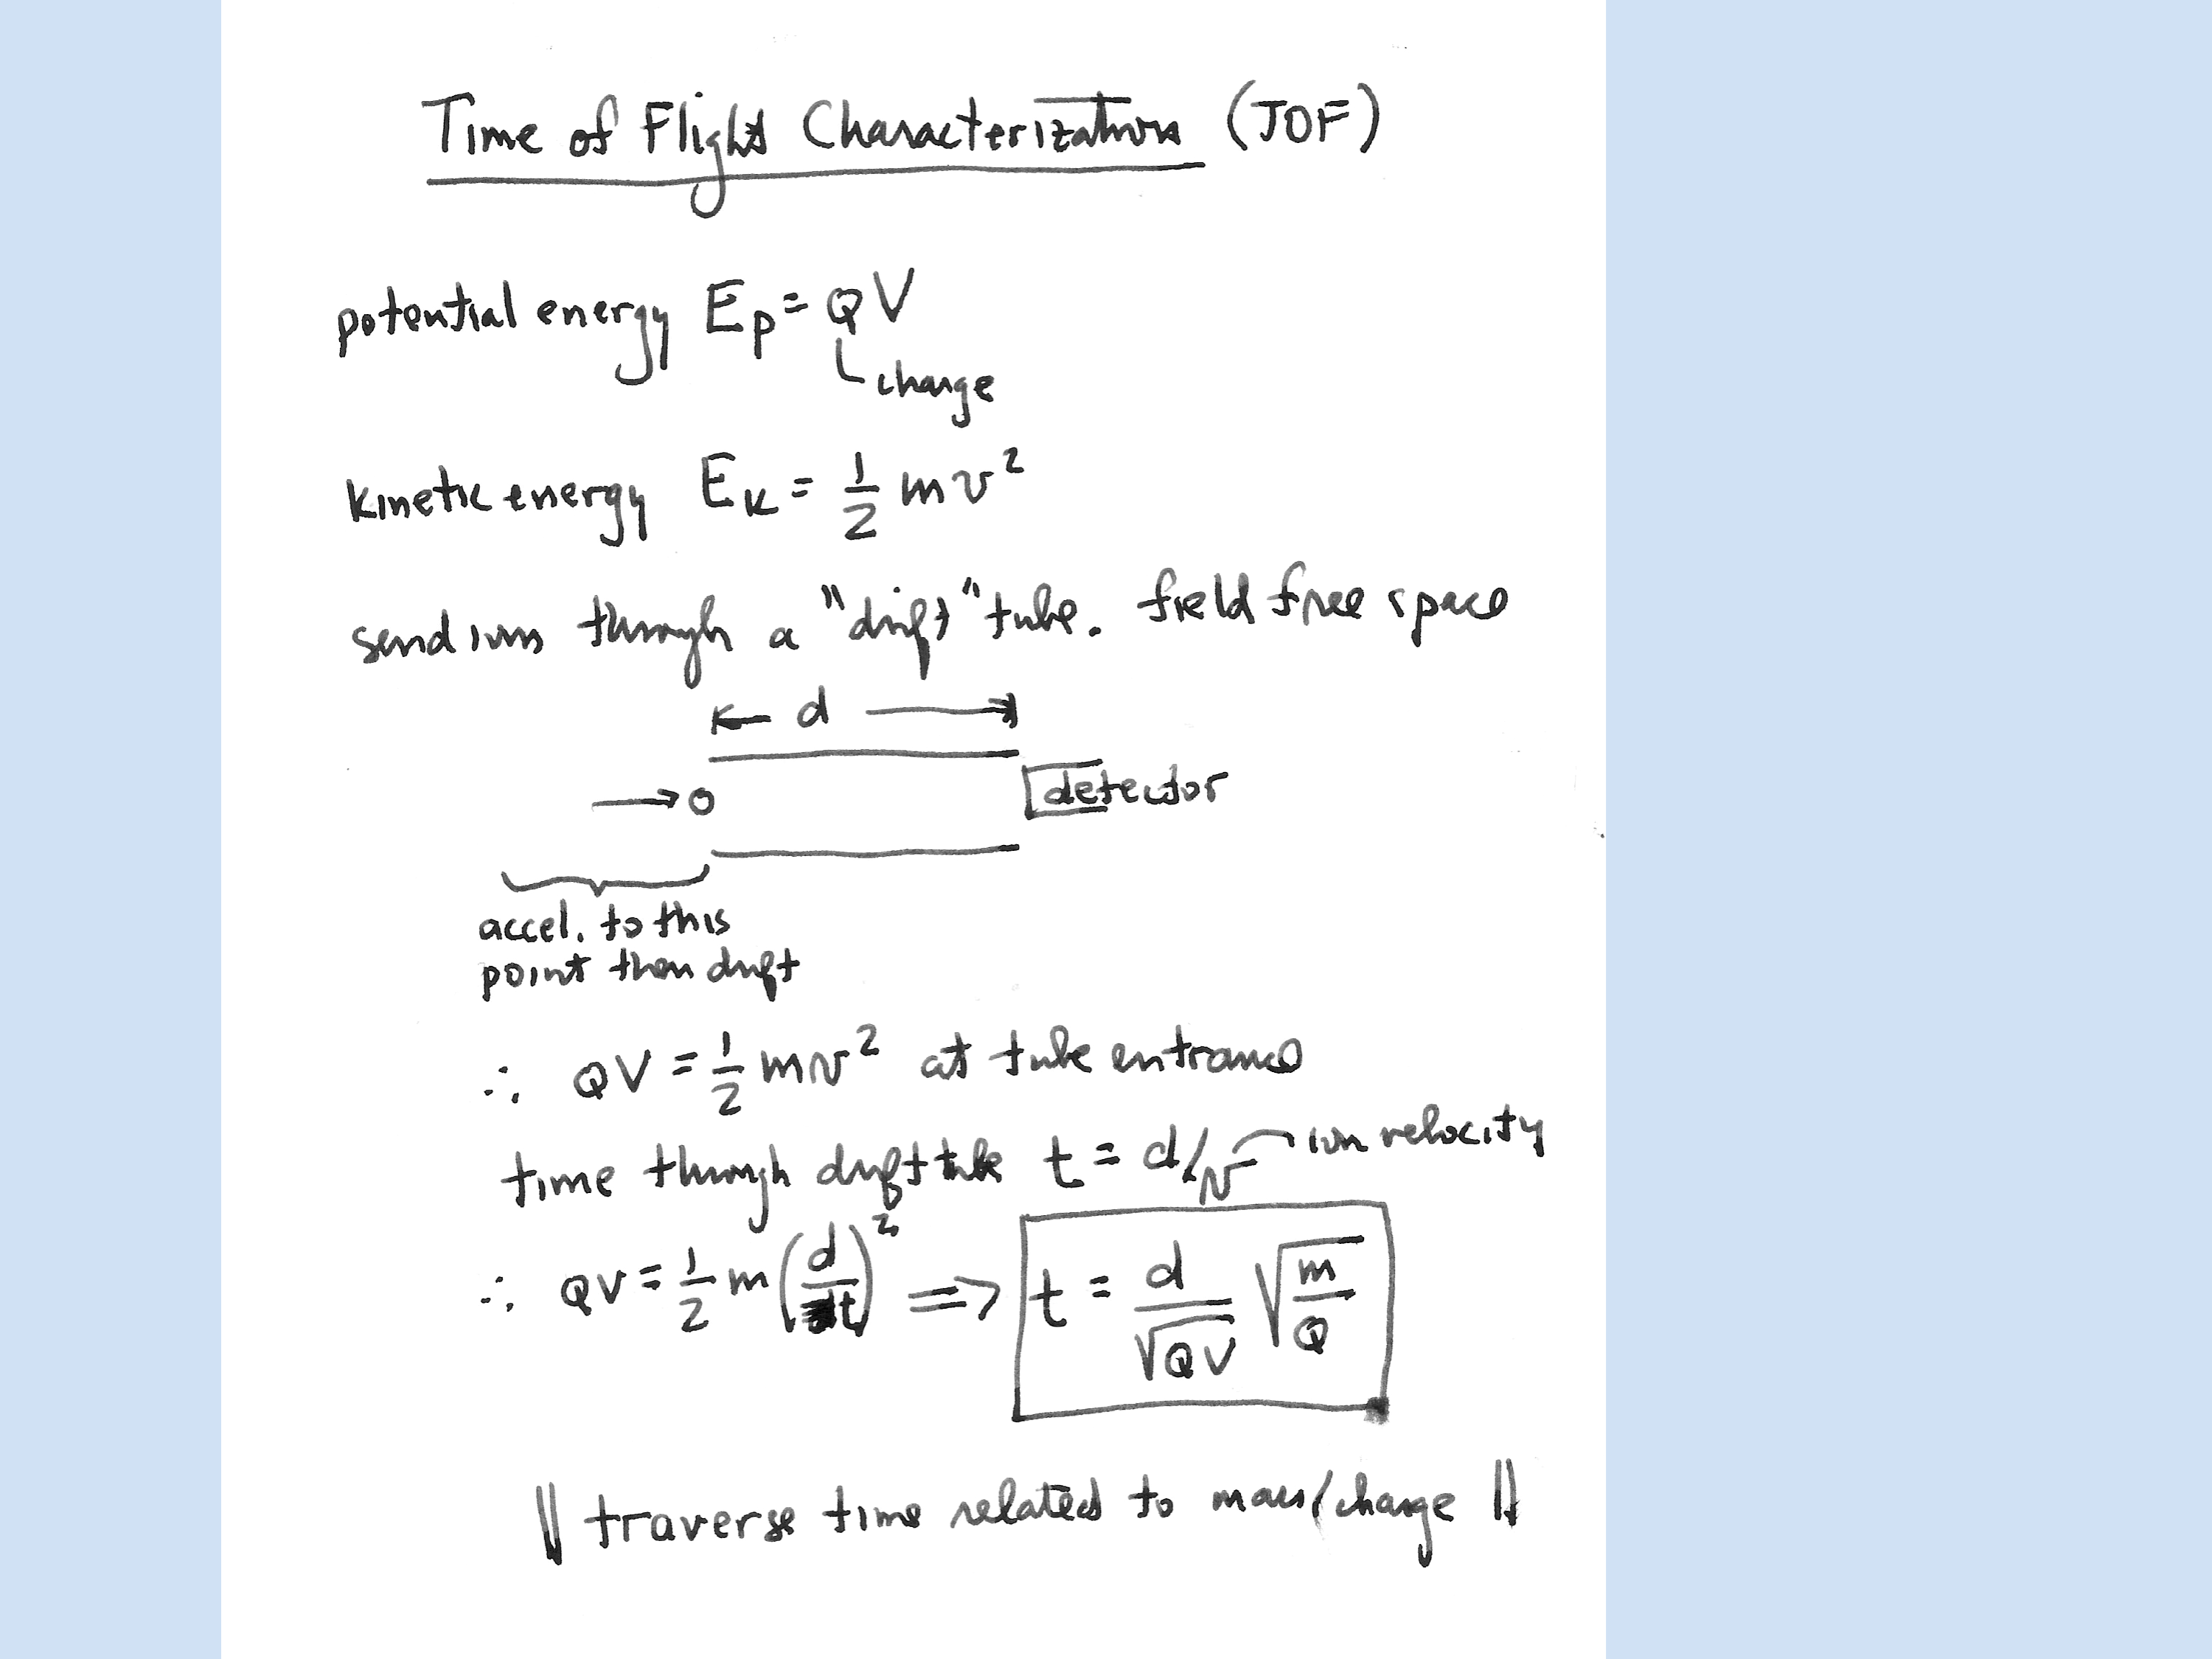 Time of Flight Characterization (TOF)
potential energy E_p = QV
charge
kinetic energy E_K = 1/2 mv²
send ions through a "drift" tube. field free space
d
detector
accel. to this
point then drift
∴ QV = 1/2 mv² at tube entrance
time through drift tube t = d/v ion velocity
∴ QV = 1/2 m (d/t)² ⇒ t = d/√QV √m/Q
|| traverse time related to mass/charge ||